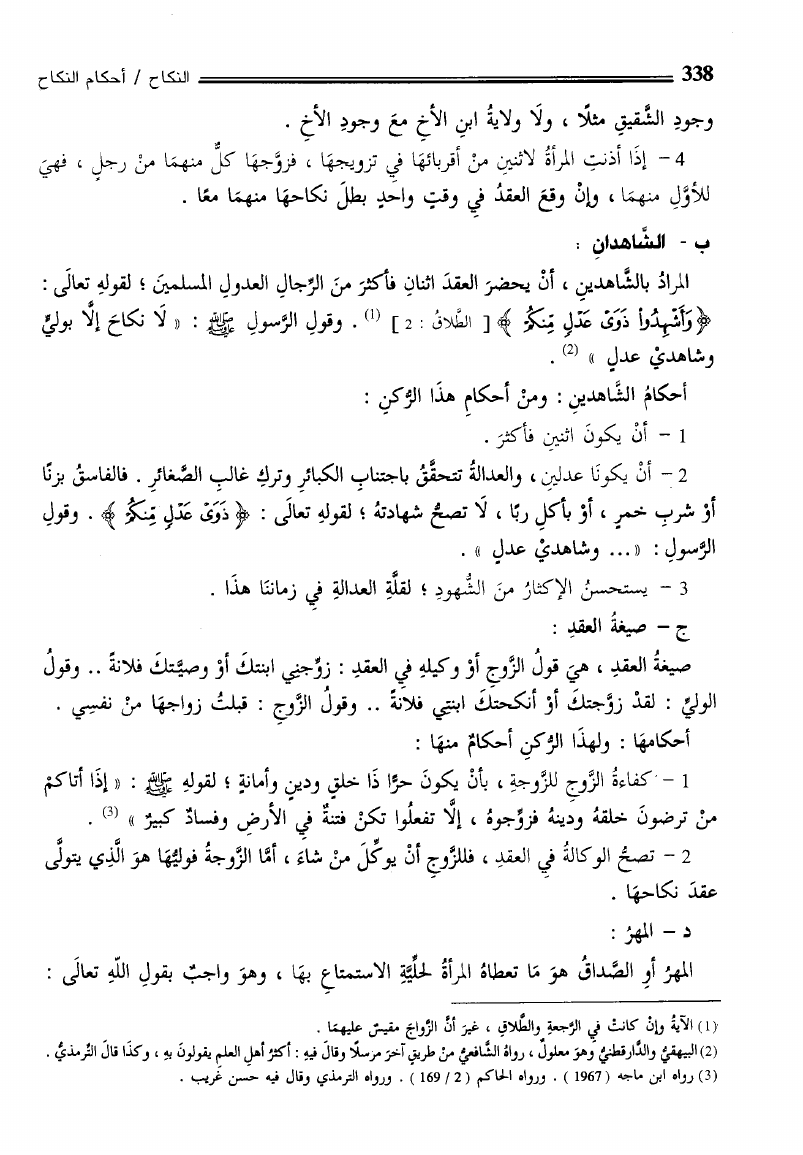 338 النكاح / أحكام النكاح
وجودِ الشَّقيقِ مثلًا ، ولَا ولايةُ ابنِ الأخِ معَ وجودِ الأخِ .
4 – إذَا أذنتِ المرأةُ لاثنينِ منْ أقربائهَا فِي تزويجهَا ، فزوَّجهَا كلٌّ منهمَا منْ رجلٍ ، فهيَ
للأوَّلِ منهمَا ، وإنْ وقعَ العقدُ فِي وقتٍ واحدٍ بطلَ نكاحهَا منهمَا معًا .
ب - الشَّاهدانِ :
المرادُ بالشَّاهدينِ ، أنْ يحضرَ العقدَ اثنانِ فأكثرَ منَ الرِّجالِ العدولِ المسلمينَ ؛ لقولهِ تعالَى :
﴿ وَأَشْهِدُوا ذَوَىْ عَدْلٍ مِّنكُمْ ﴾ [ الطَّلاقُ : 2 ] (1) . وقولِ الرَّسولِ ﷺ : « لَا نكاحَ إلَّا بوليٍّ
وشاهديْ عدلٍ » (2) .
أحكامُ الشَّاهدينِ : ومنْ أحكامِ هذَا الرُّكنِ :
1 – أنْ يكونَ اثنينِ فأكثرَ .
2 – أنْ يكونَا عدلينِ ، والعدالةُ تتحقَّقُ باجتنابِ الكبائرِ وتركِ غالبِ الصَّغائرِ . فالفاسقُ بزنًا
أوْ شربِ خمرٍ ، أوْ بأكلِ ربًا ، لَا تصحُّ شهادتهُ ؛ لقولهِ تعالَى : ﴿ ذَوَىْ عَدْلٍ مِّنكُمْ ﴾ . وقولِ
الرَّسولِ : « ... وشاهديْ عدلٍ » .
3 – يستحسنُ الإكثارُ منَ الشُّهودِ ؛ لقلَّةِ العدالةِ فِي زماننَا هذَا .
ج – صيغةُ العقدِ :
صيغةُ العقدِ ، هيَ قولُ الزَّوجِ أوْ وكيلهِ فِي العقدِ : زوِّجنِي ابنتكَ أوْ وصيَّتكَ فلانةً .. وقولُ
الوليِّ : لقدْ زوَّجتكَ أوْ أنكحتكَ ابنتِي فلانةً .. وقولُ الزَّوجِ : قبلتُ زواجهَا منْ نفسِي .
أحكامهَا : ولهذَا الرُّكنِ أحكامٌ منهَا :
1 – كفاءةُ الزَّوجِ للزَّوجةِ ، بأنْ يكونَ حرًّا ذَا خلقٍ ودينٍ وأمانةٍ ؛ لقولهِ ﷺ : « إذَا أتاكمْ
منْ ترضونَ خلقهُ ودينهُ فزوِّجوهُ ، إلَّا تفعلُوا تكنْ فتنةٌ فِي الأرضِ وفسادٌ كبيرٌ » (3) .
2 – تصحُّ الوكالةُ فِي العقدِ ، فللزَّوجِ أنْ يوكِّلَ منْ شاءَ ، أمَّا الزَّوجةُ فوليُّهَا هوَ الَّذِي يتولَّى
عقدَ نكاحهَا .
د – المهرُ :
المهرُ أوِ الصَّداقُ هوَ مَا تعطاهُ المرأةُ لحلِّيَّةِ الاستمتاعِ بهَا ، وهوَ واجبٌ بقولِ اللّهِ تعالَى :
(1) الآيةُ وإنْ كانتْ فِي الرَّجعةِ والطَّلاقِ ، غيرَ أنَّ الزَّواجَ مقيسٌ عليهمَا .
(2) البيهقيُّ والدَّارقطنيُّ وهوَ معلولٌ ، رواهُ الشَّافعيُّ منْ طريقٍ آخرَ مرسلًا وقالَ فيهِ : أكثرُ أهلِ العلمِ يقولونَ بهِ ، وكذَا قالَ التِّرمذيُّ .
(3) رواه ابن ماجه ( 1967 ) . ورواه الحاكم ( 2 / 169 ) . ورواه الترمذي وقال فيه حسن غريب .